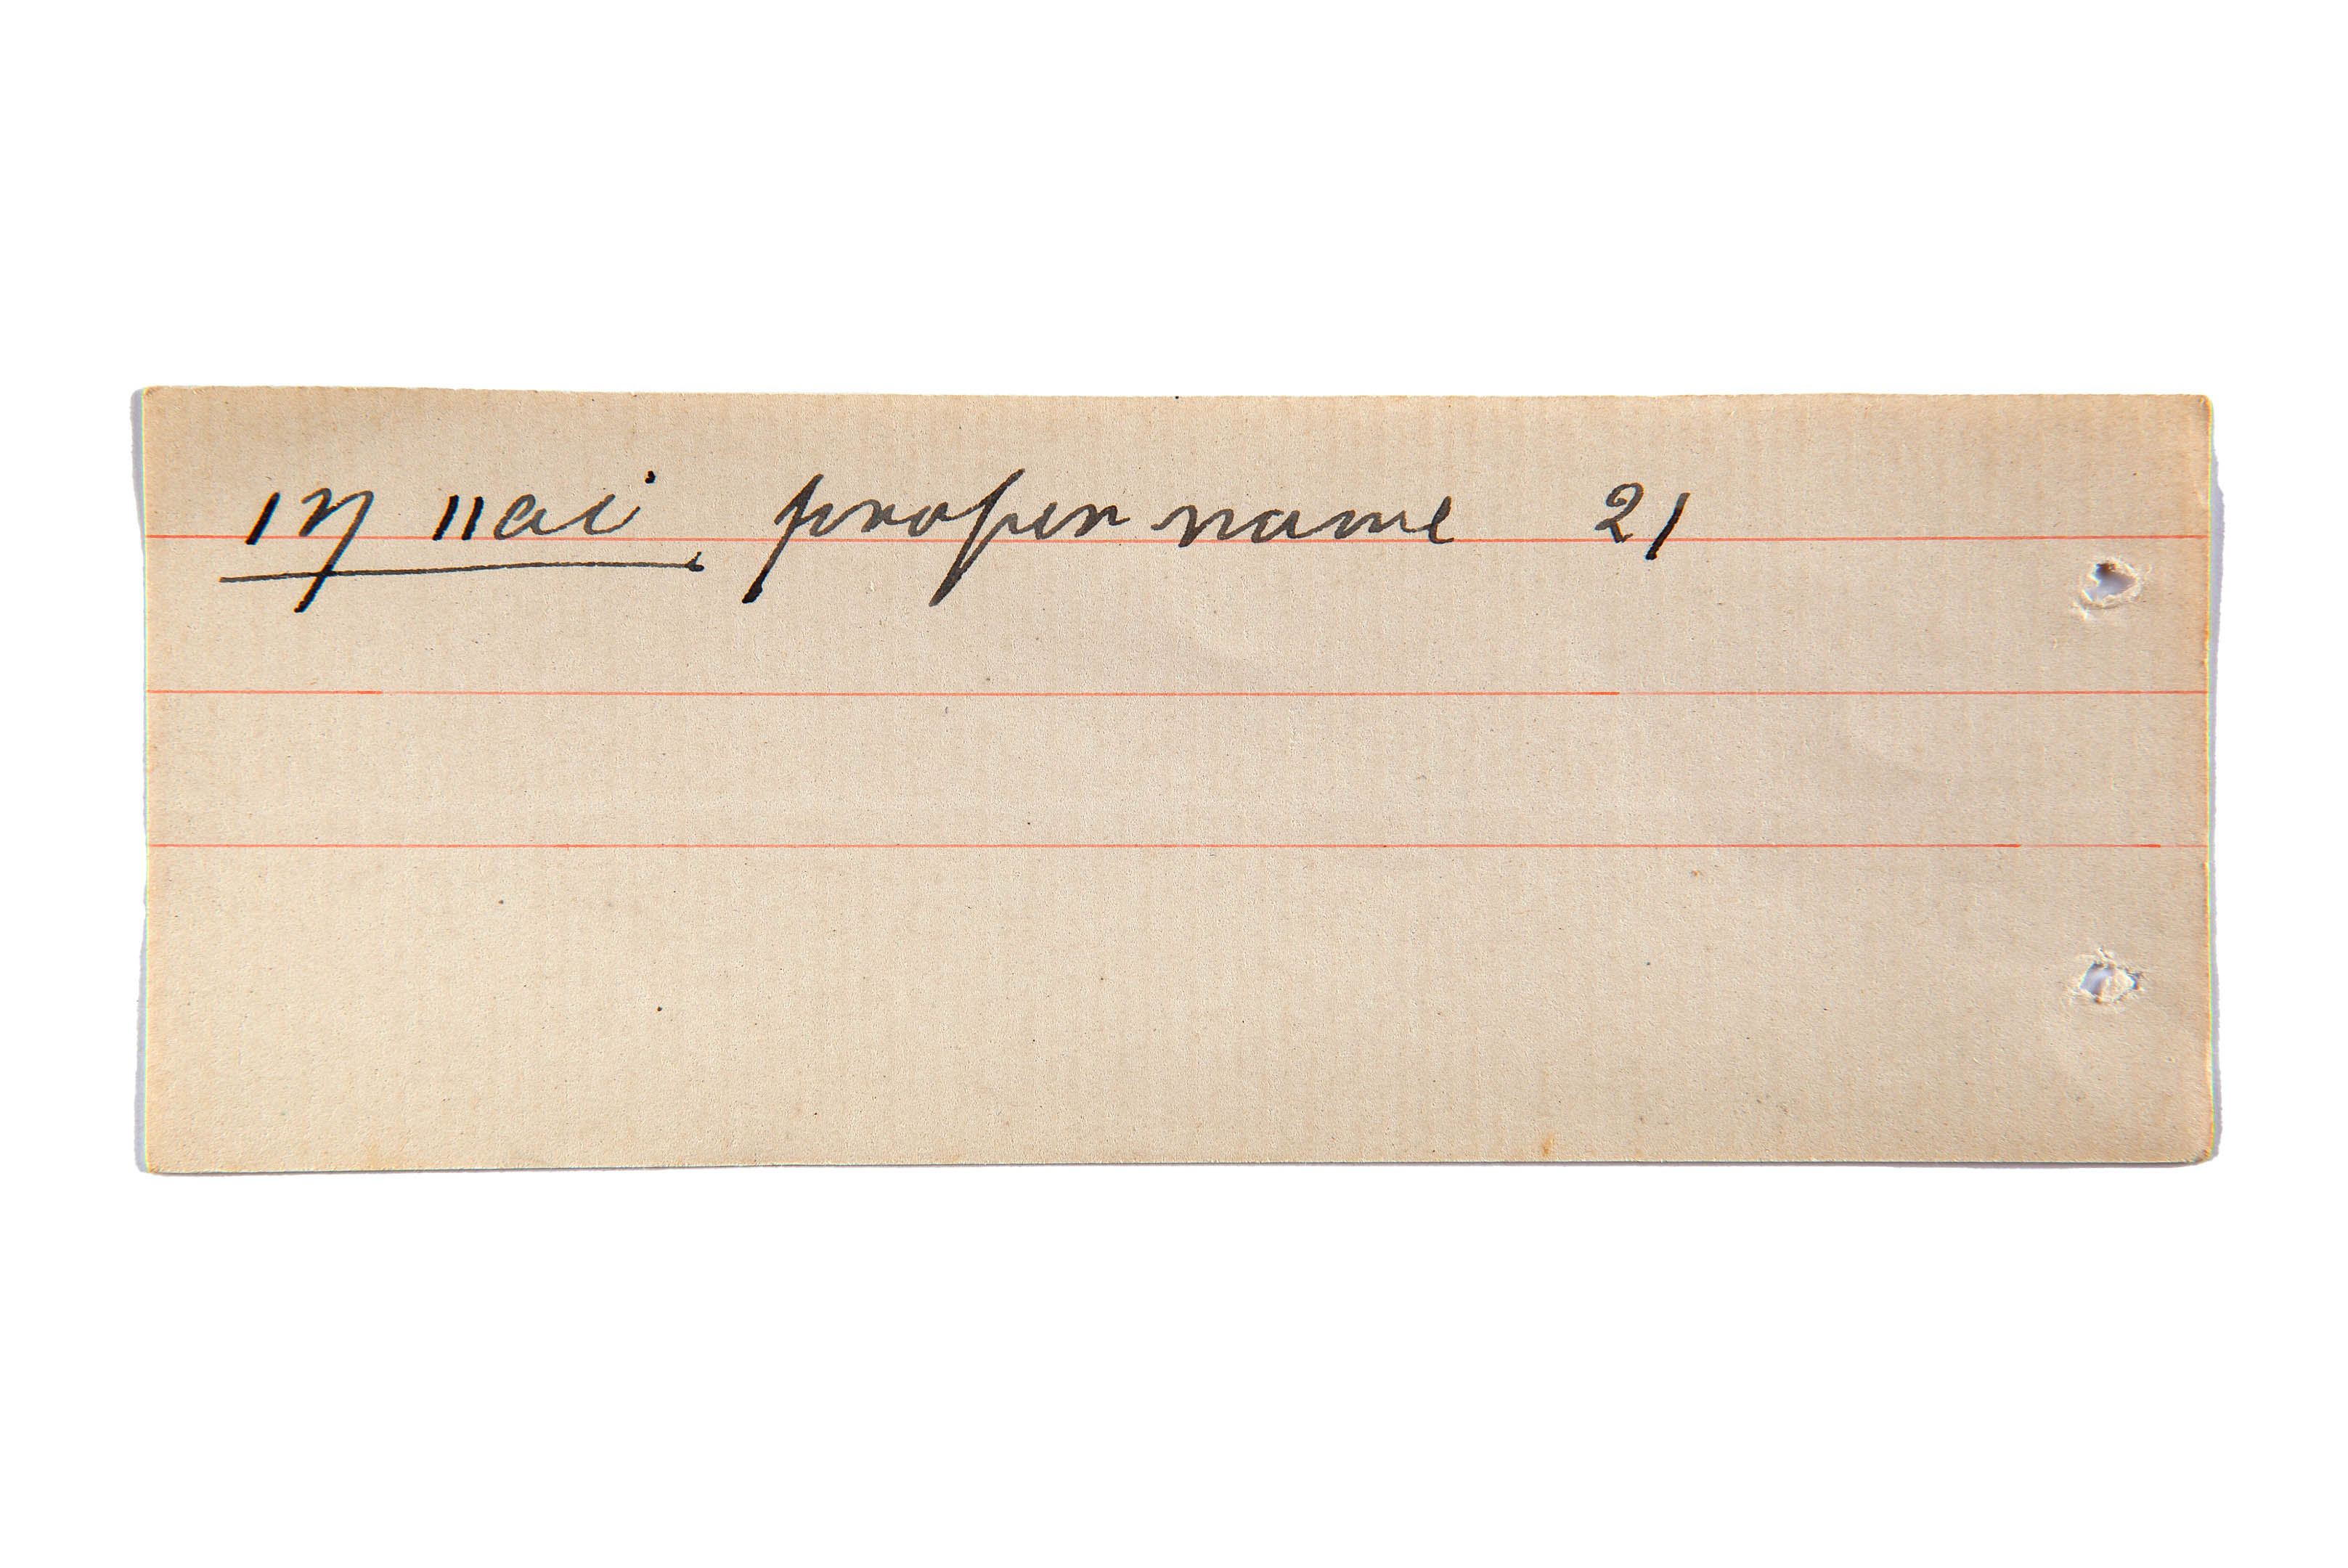 |ŋ ||ai, proper name 21